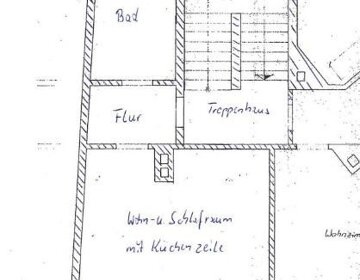 Bad
Flur
Treppenhaus
Wohn-u. Schlafraum
mit Küchenzeile
Wohnzim